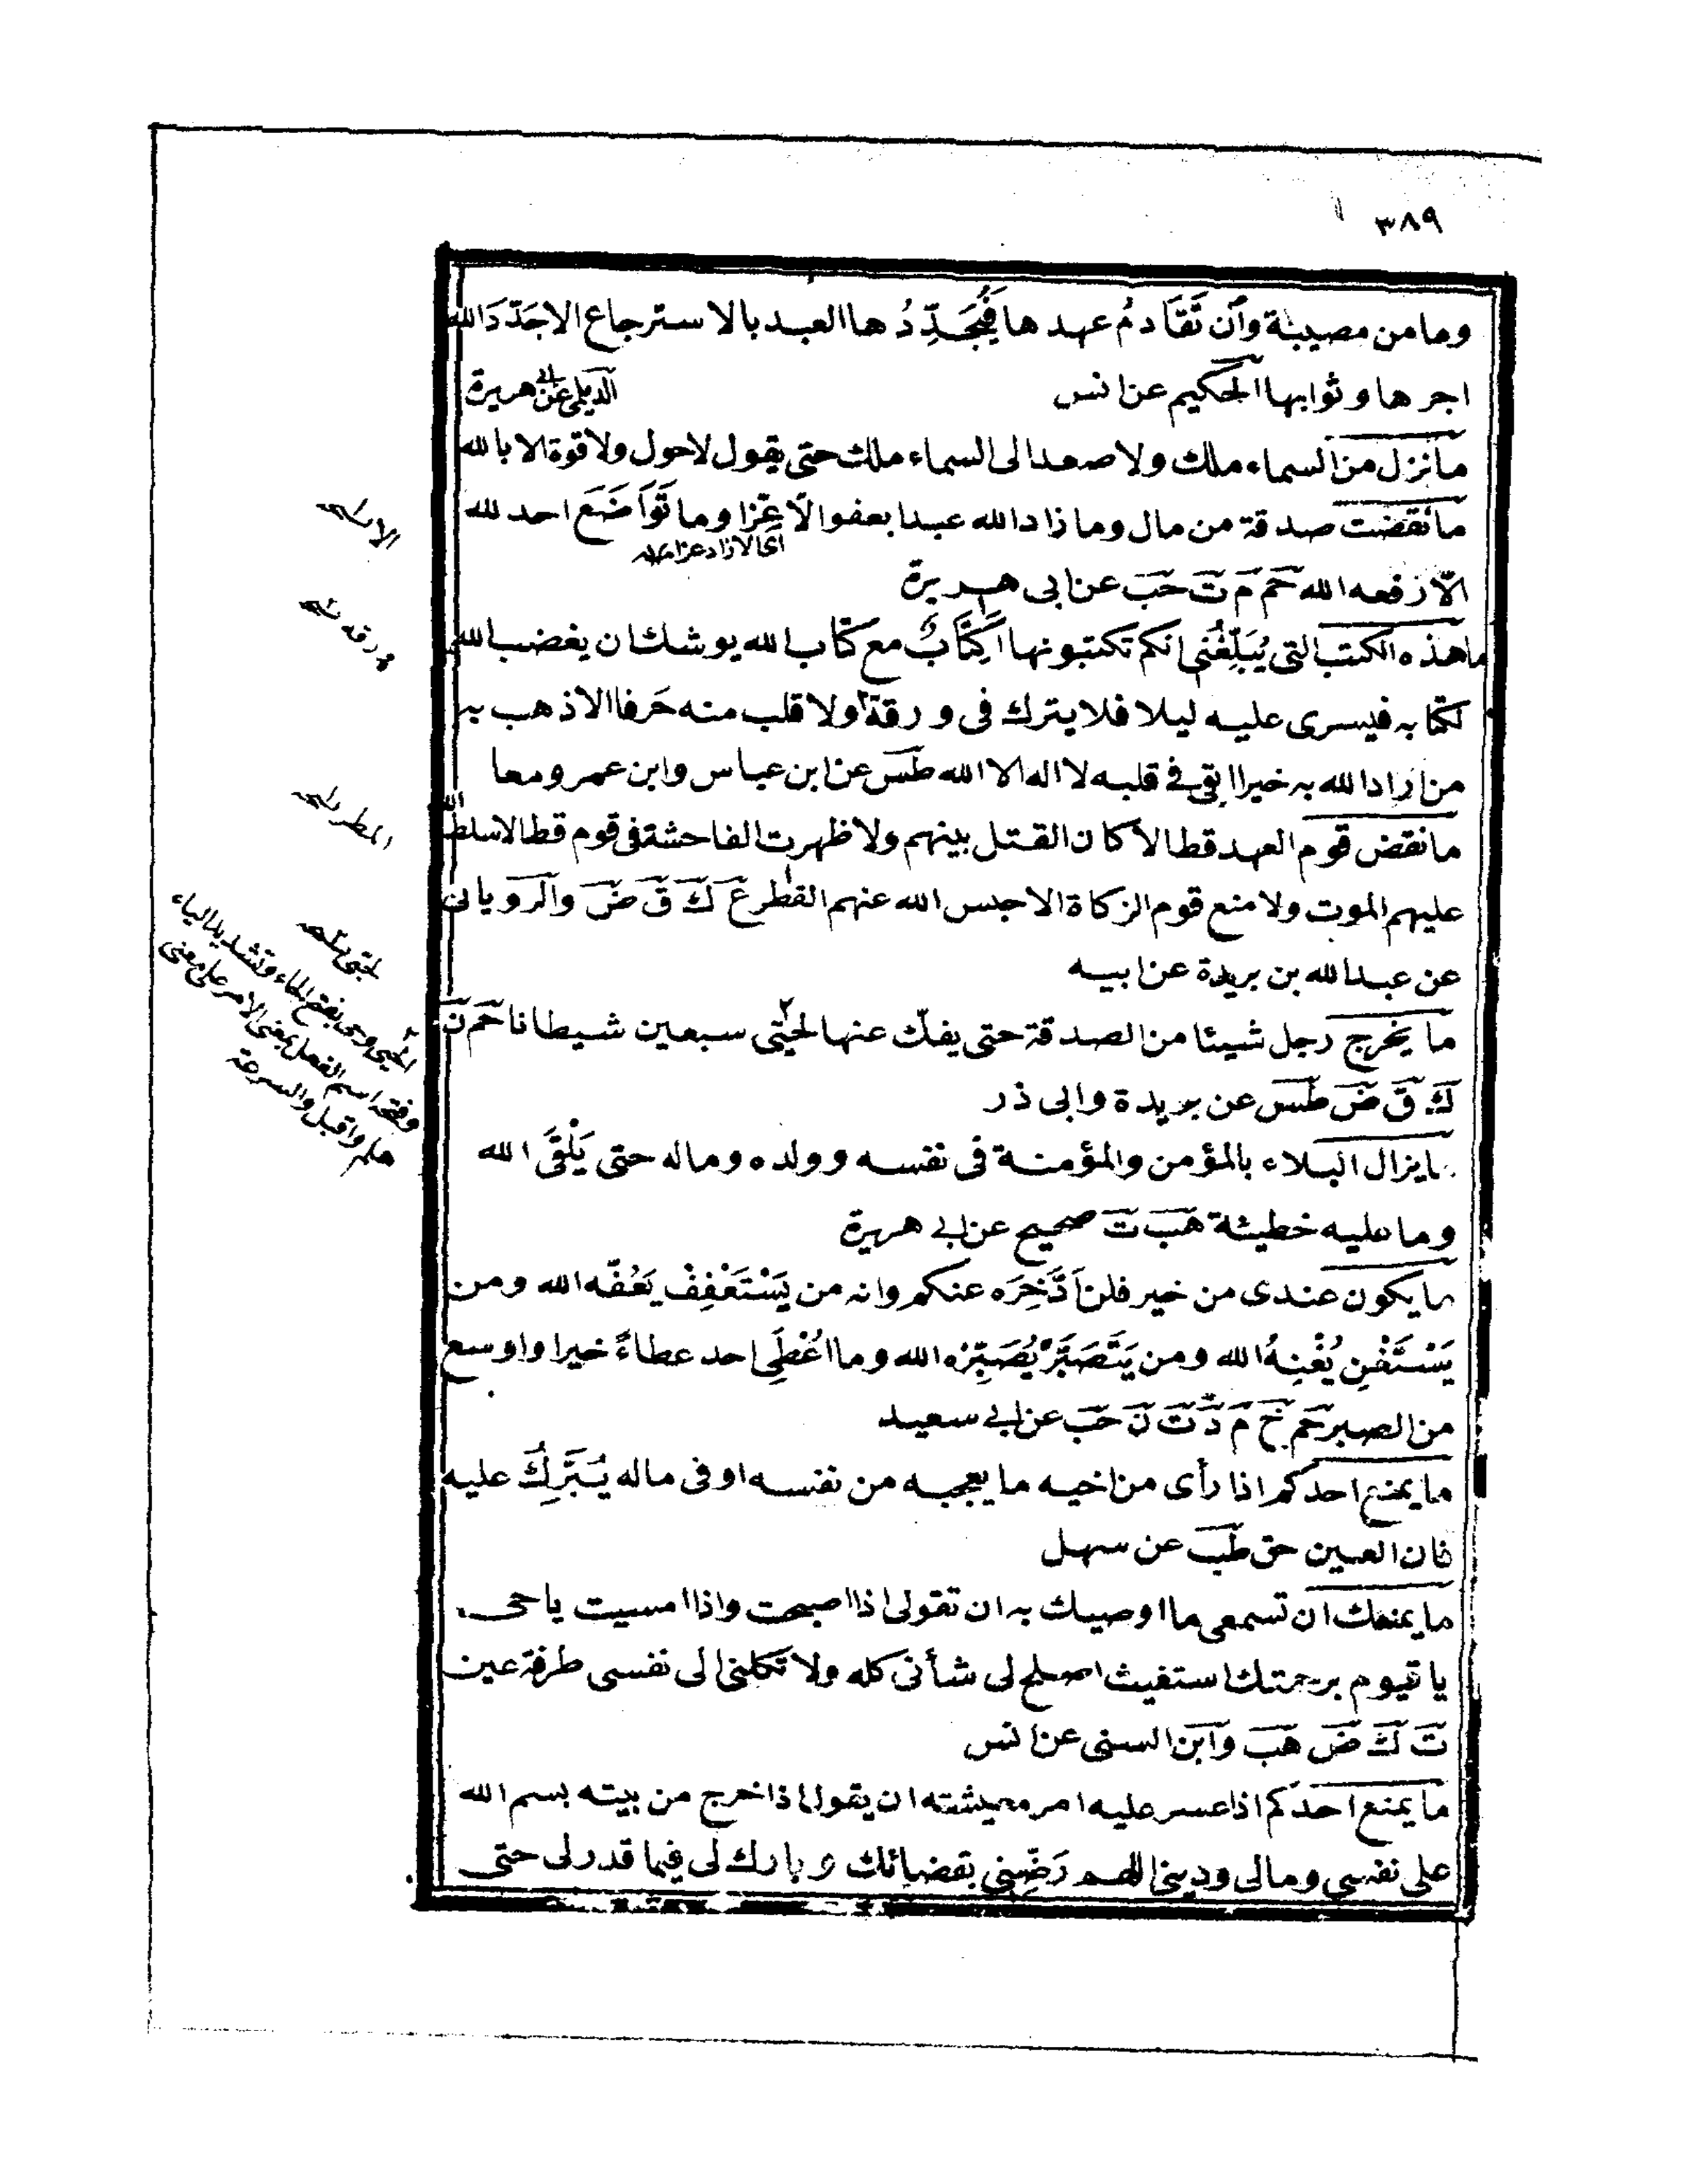 ٣٨٩
ومامن مصيبة وأن تَقَادمُ عهدها فَيُجَدِّدُها العبد بالاسترجاع الاجَدَّدَ الله
اجرها وثوابها الحكيم عن انس
الديلمى عن ابى هريرة
مانزل من السماء ملك ولا صعد الى السماء ملك حتى يقول لاحول ولا قوة الا بالله
مانقضت صدقة من مال وما زاد الله عبدا بعفو الا عِزا وما تَوَاضَعَ احد لله
اى الا زاد عزا
الّا رفعه الله حم م ت حب عن ابى هريرة
ماهذه الكتب التى يُبَلِّغُنى انكم تكتبونها اَكِتَابٌ مع كتاب الله يوشك ان يغضب الله
لكتابه فيسرى عليه ليلا فلا يترك فى ورقة ولا قلب منه حَرفا الا ذهب به
من اراد الله به خيرا ابقى فى قلبه لا اله الا الله طس عن ابن عباس وابن عمر ومعا
مانقض قوم العهد قط الا كان القتل بينهم ولا ظهرت الفاحشة فى قوم قط الا سلط الله
عليهم الموت ولا منع قوم الزكاة الا حبس الله عنهم القطر ع ك ق ض والرويانى
عن عبد الله بن بريدة عن ابيه
ما يخرج رجل شيئا من الصدقة حتى يفكّ عنها لحيَى سبعين شيطانا حم ن
ك ق ض طس عن بريدة وابى ذر
مايزال البلاء بالمؤمن والمؤمنة فى نفسه وولده وماله حتى يَلْقَى الله
وما عليه خطيئة هب ت صحيح عن ابى هريرة
مايكون عندى من خير فلن اَدَّخِرَه عنكم وانه من يَسْتَعْفِفْ يَعُفّه الله ومن
يَسْتَغْنِ يُغْنِهُ الله ومن يَتَّصَبَّرْ يُصَبِّرْه الله وما اُعْطَِى احد عطاءً خيرا واوسع
من الصبر حم خ م د ت ن حب عن ابى سعيد
مايمنع احدكم اذا رأى من اخيه ما يعجبه من نفسه او فى ماله يُبَرِّكُ عليه
فان العين حق طب عن سهل
مايمنعك ان تسمعى ما اوصيك به ان تقولى اذا اصبحت واذا امسيت يا حى
يا قيوم برحمتك استغيث اصلح لى شأنى كله ولا تكلنى الى نفسى طرفة عين
ت ك ض هب وابن السنى عن انس
مايمنع احدكم اذا عسر عليه امر معيشته ان يقول اذا خرج من بيته بسم الله
على نفسى ومالى ودينى اللهم رَضِّنِى بقضائك وبارك لى فيما قدر لى حتى
ورقه
المطر
وحى بفتح الحاء وتشديد الياء
وفتحه اسم الفعل بمعنى الامر على معنى
هلم واقبل والسرعة